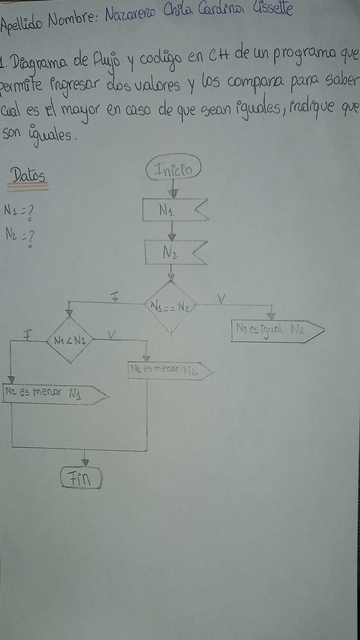 Apellido Nombre: Nazareno Chila Cardina Lissette
1. Diagrama de flujo y codigo en C++ de un programa que
permite ingresar dos valores y los compara para saber
cual es el mayor en caso de que sean iguales, indique que
son iguales.
Datos
N1=?
N2=?
Inicio
N1
N2
N1==N2
F
V
N1 es igual N2
N1<N2
F
V
N1 es menor N2
N2 es menor N1
Fin